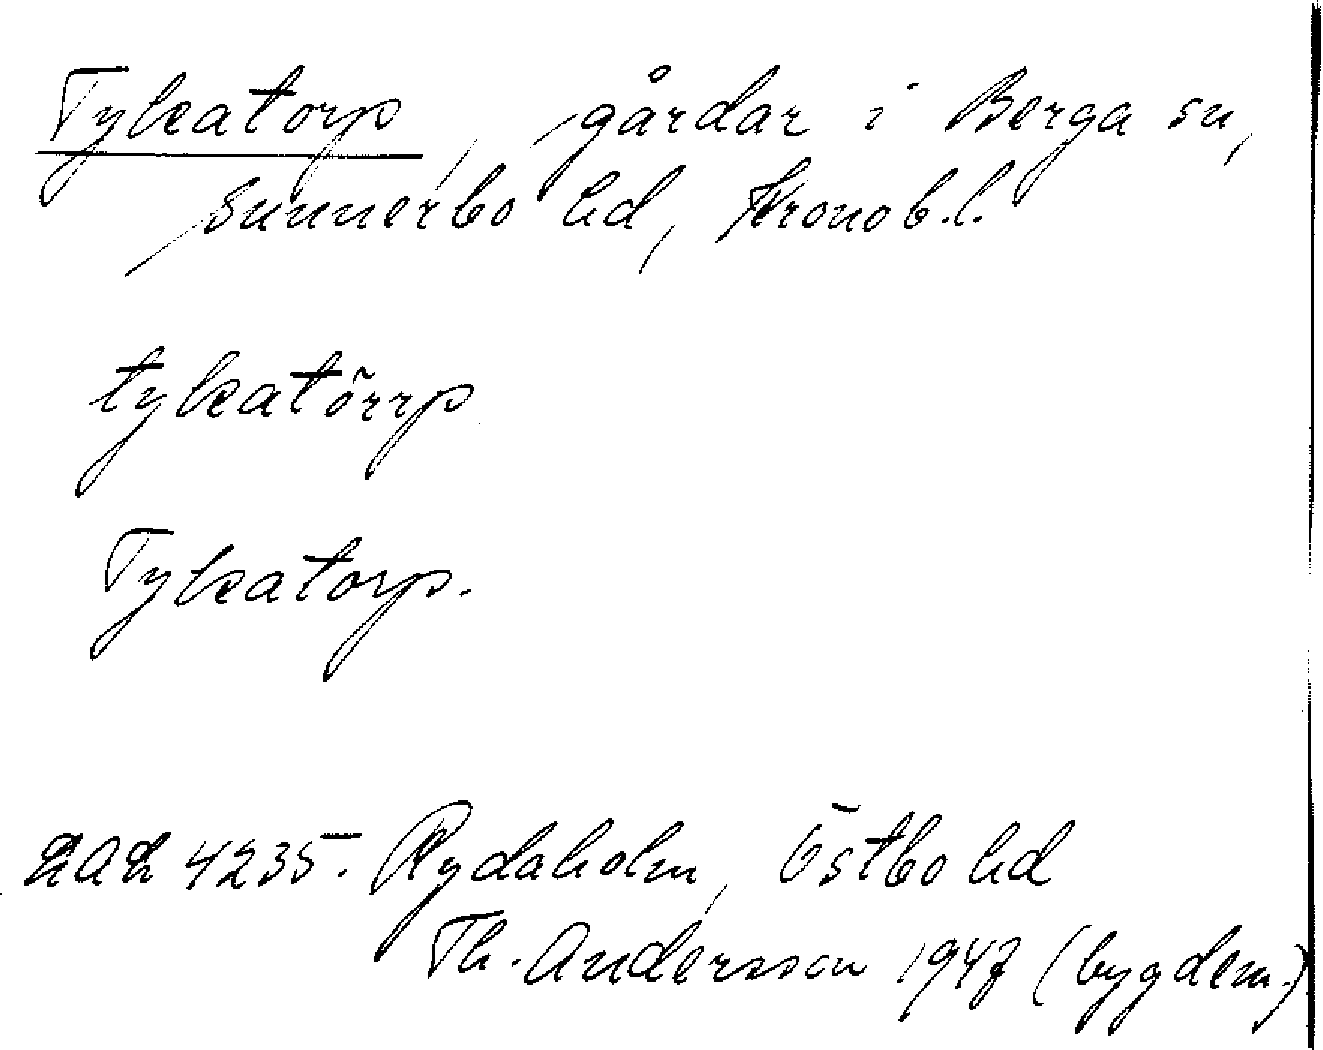 Tykatorp, gårdar i Berga sn,
Sunnerbo hd, Kronob.l.
tykatõrrp
Tykatorp.
LAL 4235. Rydaholm, Östbo hd
Th. Andersson 1947 (bygdem.)